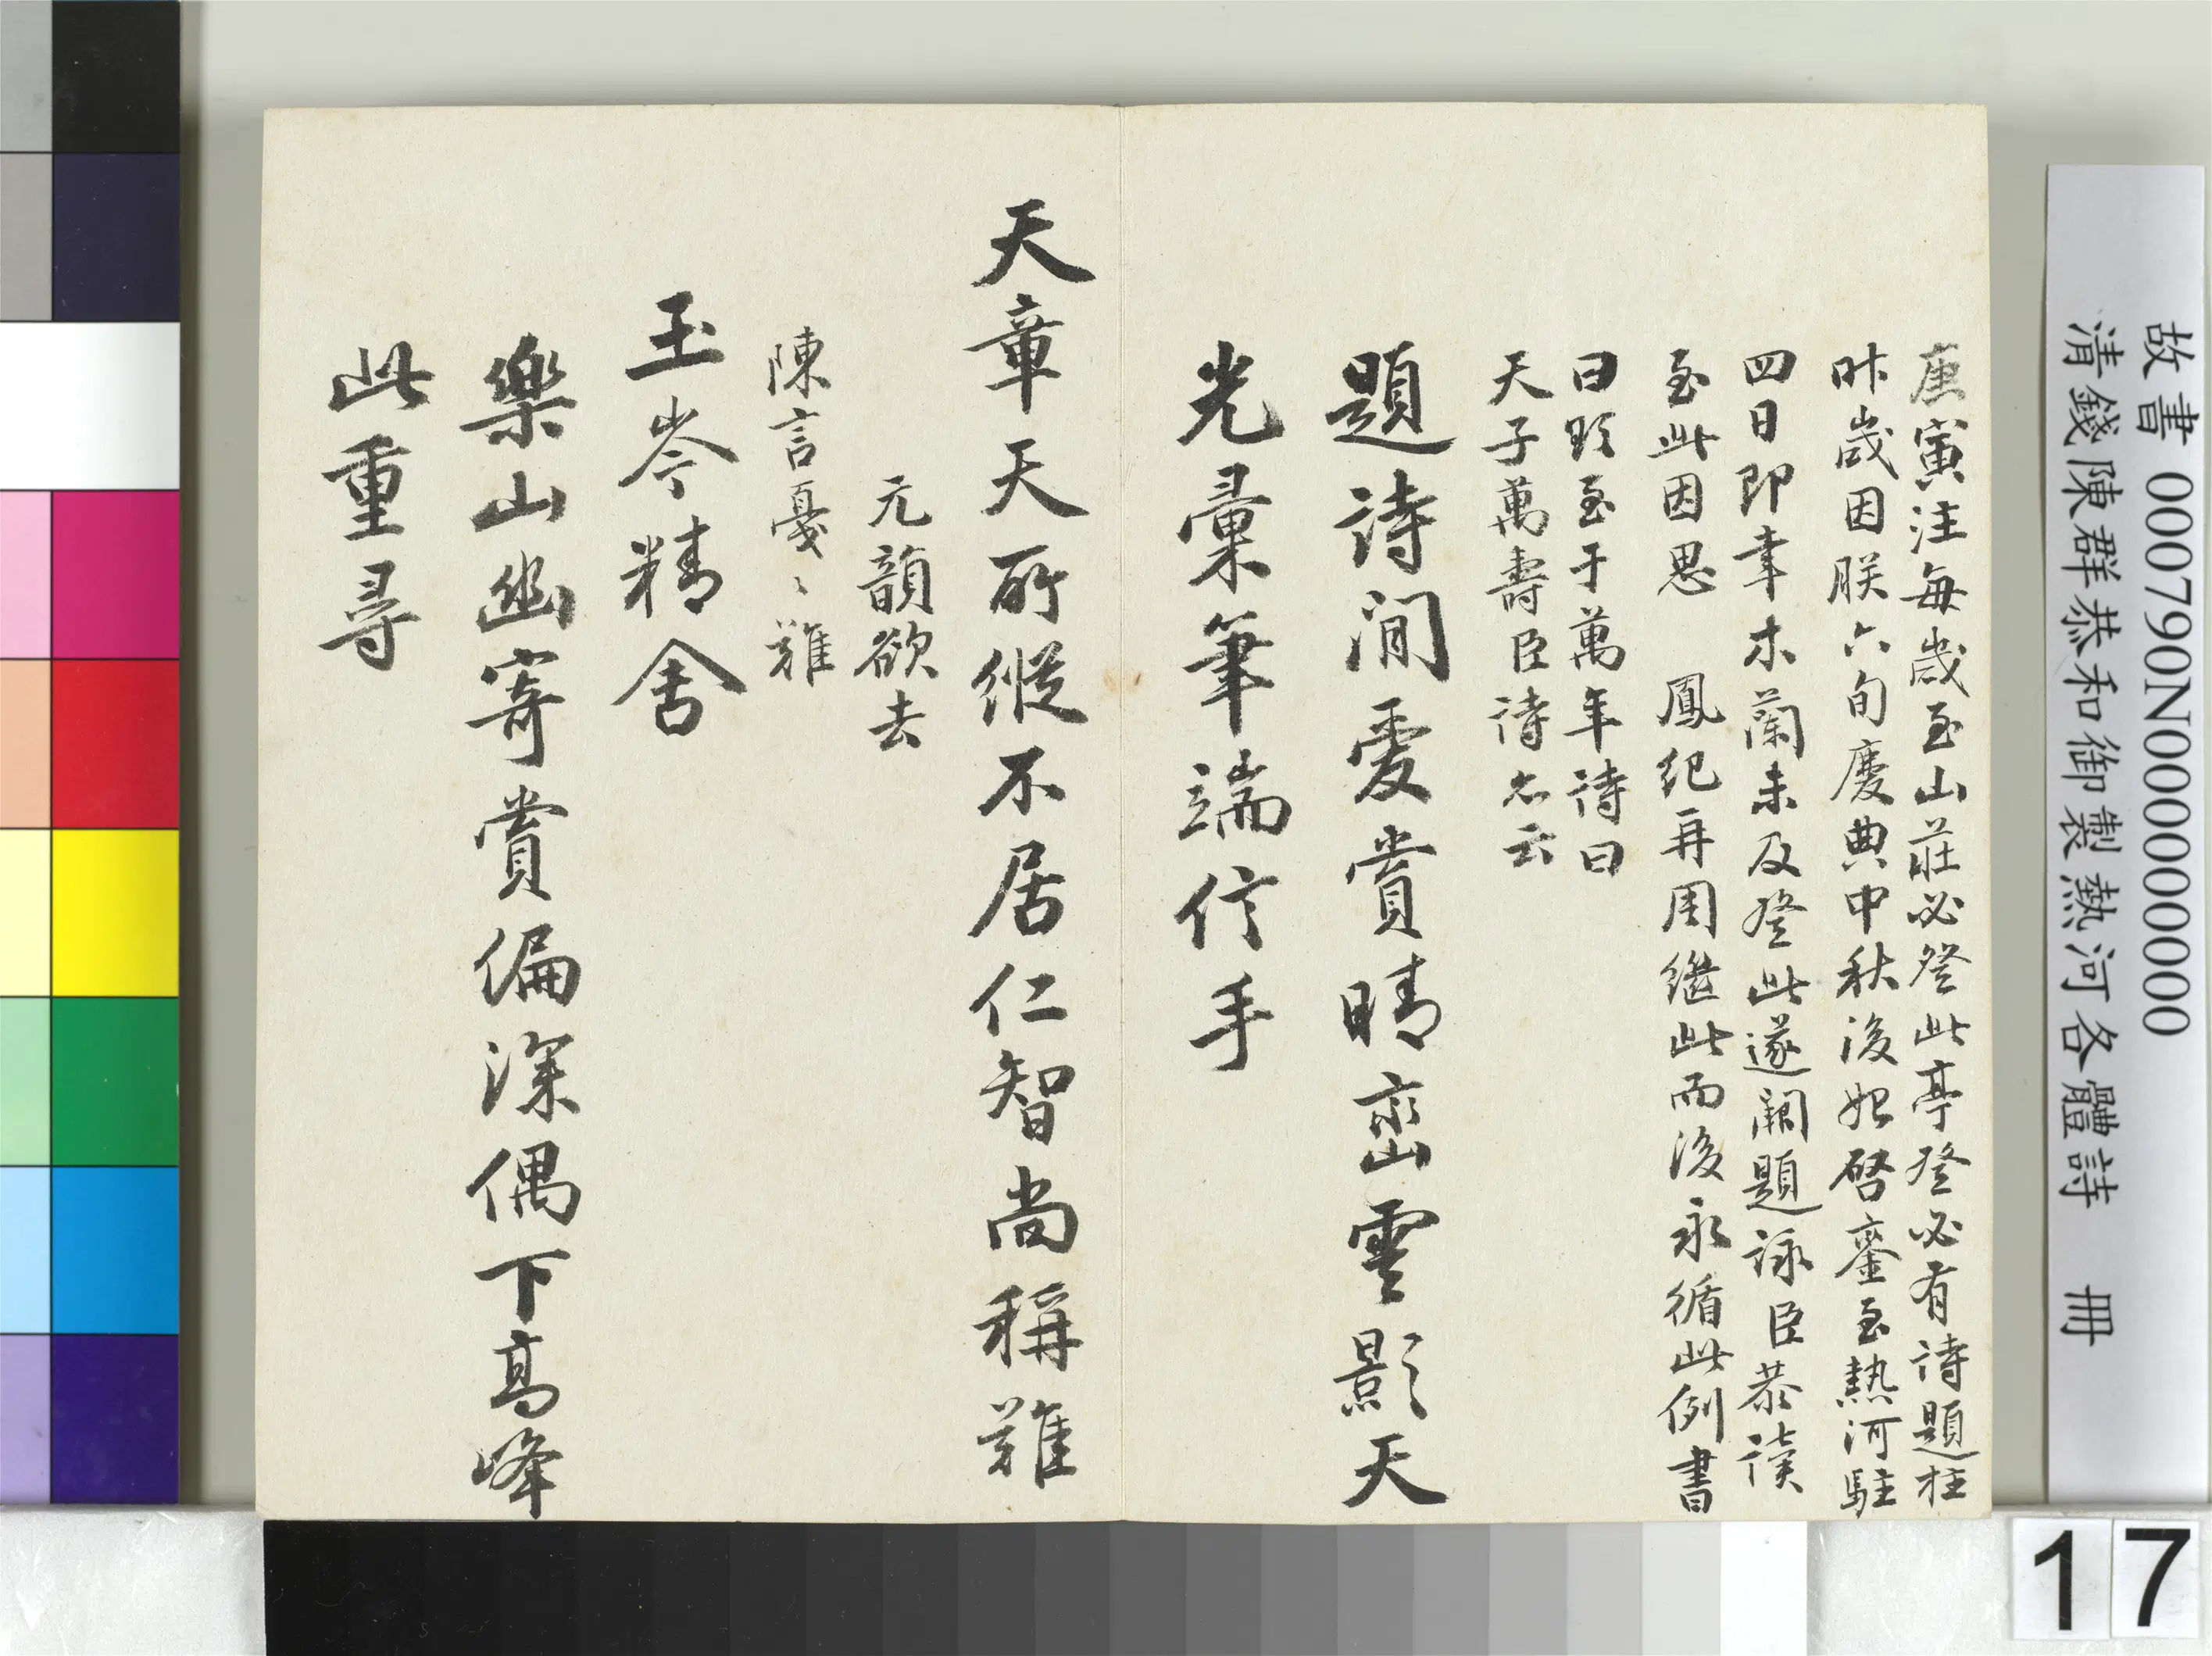 庚寅注每歲至山莊必登此亭登必有詩題柱
昨歲因朕六旬慶典中秋後始啓鑾至熱河駐
四日即幸木蘭未及登此遂闕題詠臣恭讀
至此因思 鳳紀再周繼此而後永循此例書
曰至于萬年詩曰
天子萬壽臣詩亦云
題詩澗愛賞晴巒雲影天
光彙筆端信手
天章天所縱不居仁智尚稱難
元韻欲去
陳言戛〻難
玉岑精舍
樂山幽寄賞偏深偶下高峰
此重尋
故書 000790N000000000
清錢陳群恭和御製熱河各體詩 冊
17